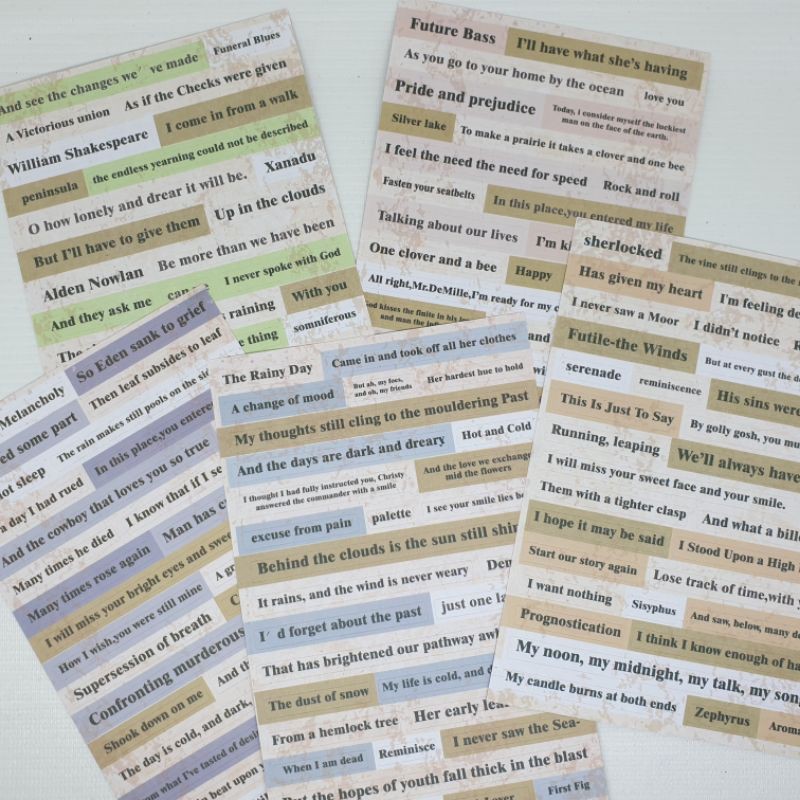 And see the changes we' ve made
Funeral Blues
A Victorious union
As if the Checks were given
William Shakespeare
I come in from a walk
peninsula
the endless yearning could not be described
O how lonely and drear it will be.
Xanadu
But I'll have to give them
Up in the clouds
Alden Nowlan
Be more than we have been
And they ask me
I never spoke with God
raining
With you
thing
somniferous
Future Bass
I'll have what she's having
As you go to your home by the ocean
love you
Pride and prejudice
Today, i consider myself the luckiest
man on the face of the earth.
Silver lake
To make a prairie it takes a clover and one bee
I feel the need the need for speed
Rock and roll
Fasten your seatbelts
In this place,you entered my life
Talking about our lives
I'm
One clover and a bee
Happy
All right,Mr.DeMille,I'm ready for my
God kisses the finite in his
and man the
sherlocked
The vine still clings to the
Has given my heart
I'm feeling
I never saw a Moor
I didn't notice
Futile-the Winds
But at every gust the
serenade
reminiscence
His sins were
This Is Just To Say
By golly gosh, you
Running, leaping
We'll always have
I will miss your sweet face and your smile.
Them with a tighter clasp
And what a
I hope it may be said
I Stood Upon a High
Start our story again
Lose track of time,with
I want nothing
Sisyphus
And saw, below, many
Prognostication
I think I know enough of
My noon, my midnight, my talk, my
My candle burns at both ends
Zephyrus
Melancholy
So Eden sank to grief
some part
Then leaf subsides to leaf
sleep
The rain makes still pools on the
a day I had rued
In this place,you entered
And the cowboy that loves you so true
Many times he died
I know that if I
Many times rose again
Man has
I will miss your bright eyes and
How I wish,you were still mine
Supersession of breath
Confronting murderous
Shook down on me
And
The day is cold, and dark,
what I've tasted of
beat upon
The Rainy Day
Came in and took off all her clothes
A change of mood
But ah, my foes,
and oh, my friends
Her hardest hue to hold
My thoughts still cling to the mouldering Past
And the days are dark and dreary
Hot and Cold
I thought I had fully instructed you, Christy
answered the commander with a smile
And the love we exchange
mid the flowers
excuse from pain
palette
I see your smile lies
Behind the clouds is the sun still
It rains, and the wind is never weary
I' d forget about the past
just one
That has brightened our pathway
The dust of snow
My life is cold, and
From a hemlock tree
Her early
When I am dead
Reminisce
I never saw the Sea-
But the hopes of youth fall thick in the blast
First Fig